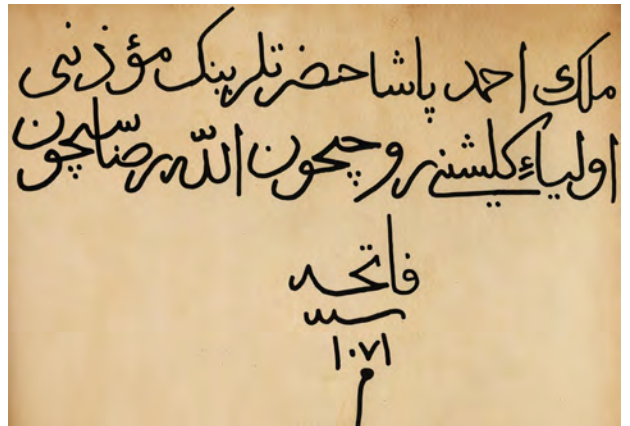 ملك احمد پاشا حضرتلرينك مؤذنى
اولياءِ كلشنى روحيچون اللّه رضاسيچون
فاتحه
سنه
١٠٧١